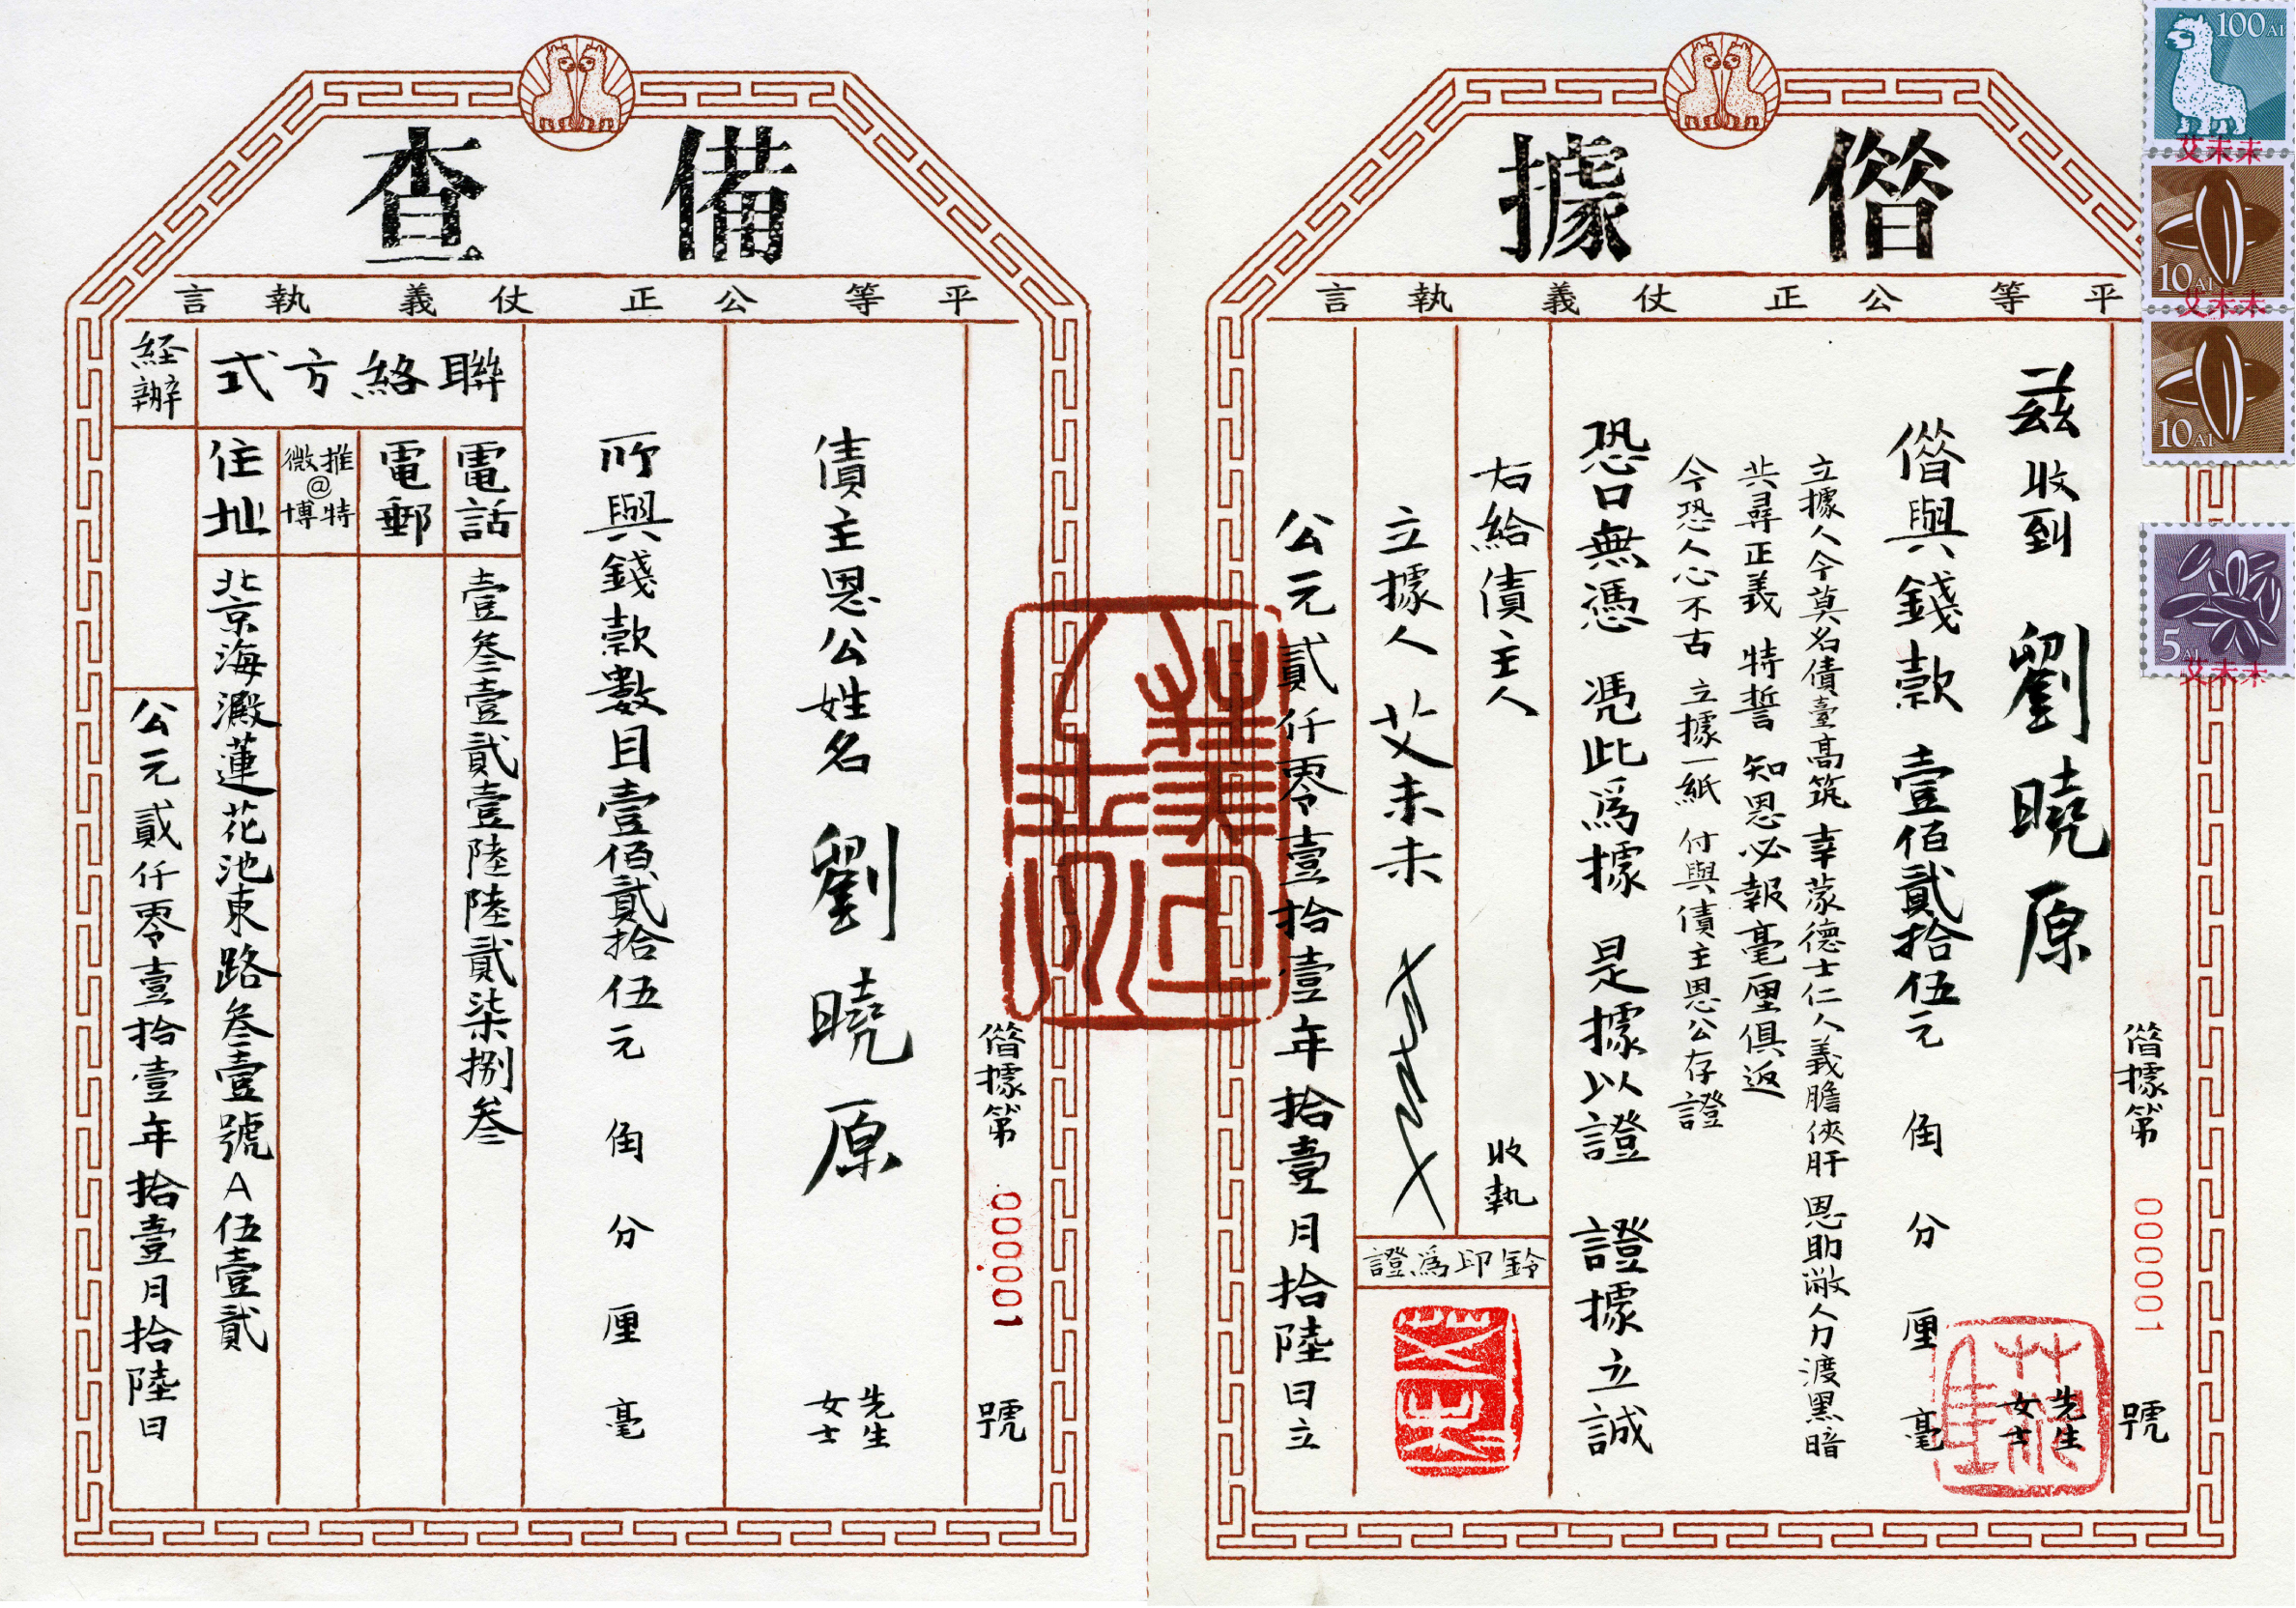 僭據
平等公正仗義執言
僭據第 000001 號
茲收到 劉曉原 先生 女士
僭與錢款 壹佰貳拾伍元 角 分 厘 毫
立據人今莫名債臺高筑 幸蒙德士仁人義膽俠肝 恩助敝人力渡黑暗
共尋正義 特誓 知恩必報毫厘俱返
今恐人心不古 立據一紙 付與債主恩公存證
恐口無憑 憑此爲據 是據以證 證據立誠
右給債主人 收執
立據人 艾未未
鈴印爲證
公元貳仟零壹拾壹年拾壹月拾陸日立
100AI
艾未未
10AI
艾未未
10AI
5AI
艾未未
備查
平等公正仗義執言
僭據第 000001 號
債主恩公姓名 劉曉原 先生 女士
所與錢款數目壹佰貳拾伍元 角 分 厘 毫
聯絡方式
電話 壹叁壹貳壹陸陸貳柒捌叁
電郵
推特@微博
住址 北京海澱蓮花池東路叁壹號A伍壹貳
経辦
公元貳仟零壹拾壹年拾壹月拾陸日